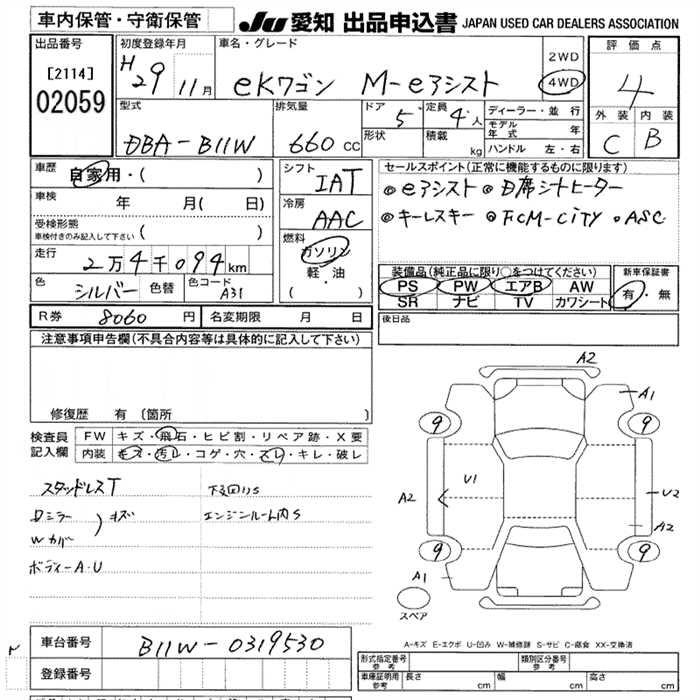 車内保管・守衛保管
JU 愛知 出品申込書 JAPAN USED CAR DEALERS ASSOCIATION
出品番号
[2114]
02059
初度登録年月
H29 11月
車名・グレード
eKワゴン M-eアシスト
2WD
4WD
評価点
4
外装 内装
C B
型式
DBA-B11W
排気量
660 CC
ドア 5
形状
定員 4人
積載 kg
ディーラー・並行
モデル年式 年
ハンドル 左・右
車歴 自家用・( )
車検 年 月( 日)
受検形態
車検付きのみ記入して下さい ( )
走行 2万4千094km
色 シルバー 色替 色コード A31
シフト IAT
冷房 AAC
燃料 ガソリン
軽・油
( )
セールスポイント(正常に機能するものに限ります)
◎eアシスト ◎D席シートヒーター
◎キーレスキー ◎FCM-CITY ◎ASC
装備品(純正品に限り○をつけてください)
PS PW エアB AW
SR ナビ TV カワシート
新車保証書
有・無
R券 8060 円 名変期限 月 日
後日品
注意事項申告欄(不具合内容等は具体的に記入して下さい)
修復歴 有 〔箇所 〕
検査員記入欄
FW キズ・飛石・ヒビ割・リペア跡・X要
内装 キズ・汚レ・コゲ・穴・スレ・キレ・破レ
スタッドレスT
Dミラー
Wカバー ) キズ
ボディーA・U
下回りS
エンジンルーム内S
A2
A1
9 9
U1
A2 U2
A2
9 9
A1
スペア
A-キズ E-エクボ U-凹み W-補修跡 S-サビ C-腐食 XX-交換済
車台番号 B11W-0319530
登録番号
形式指定番号 参考
類別区分番号 参考
車庫証明用 参考 長さ cm 幅 cm 高さ cm